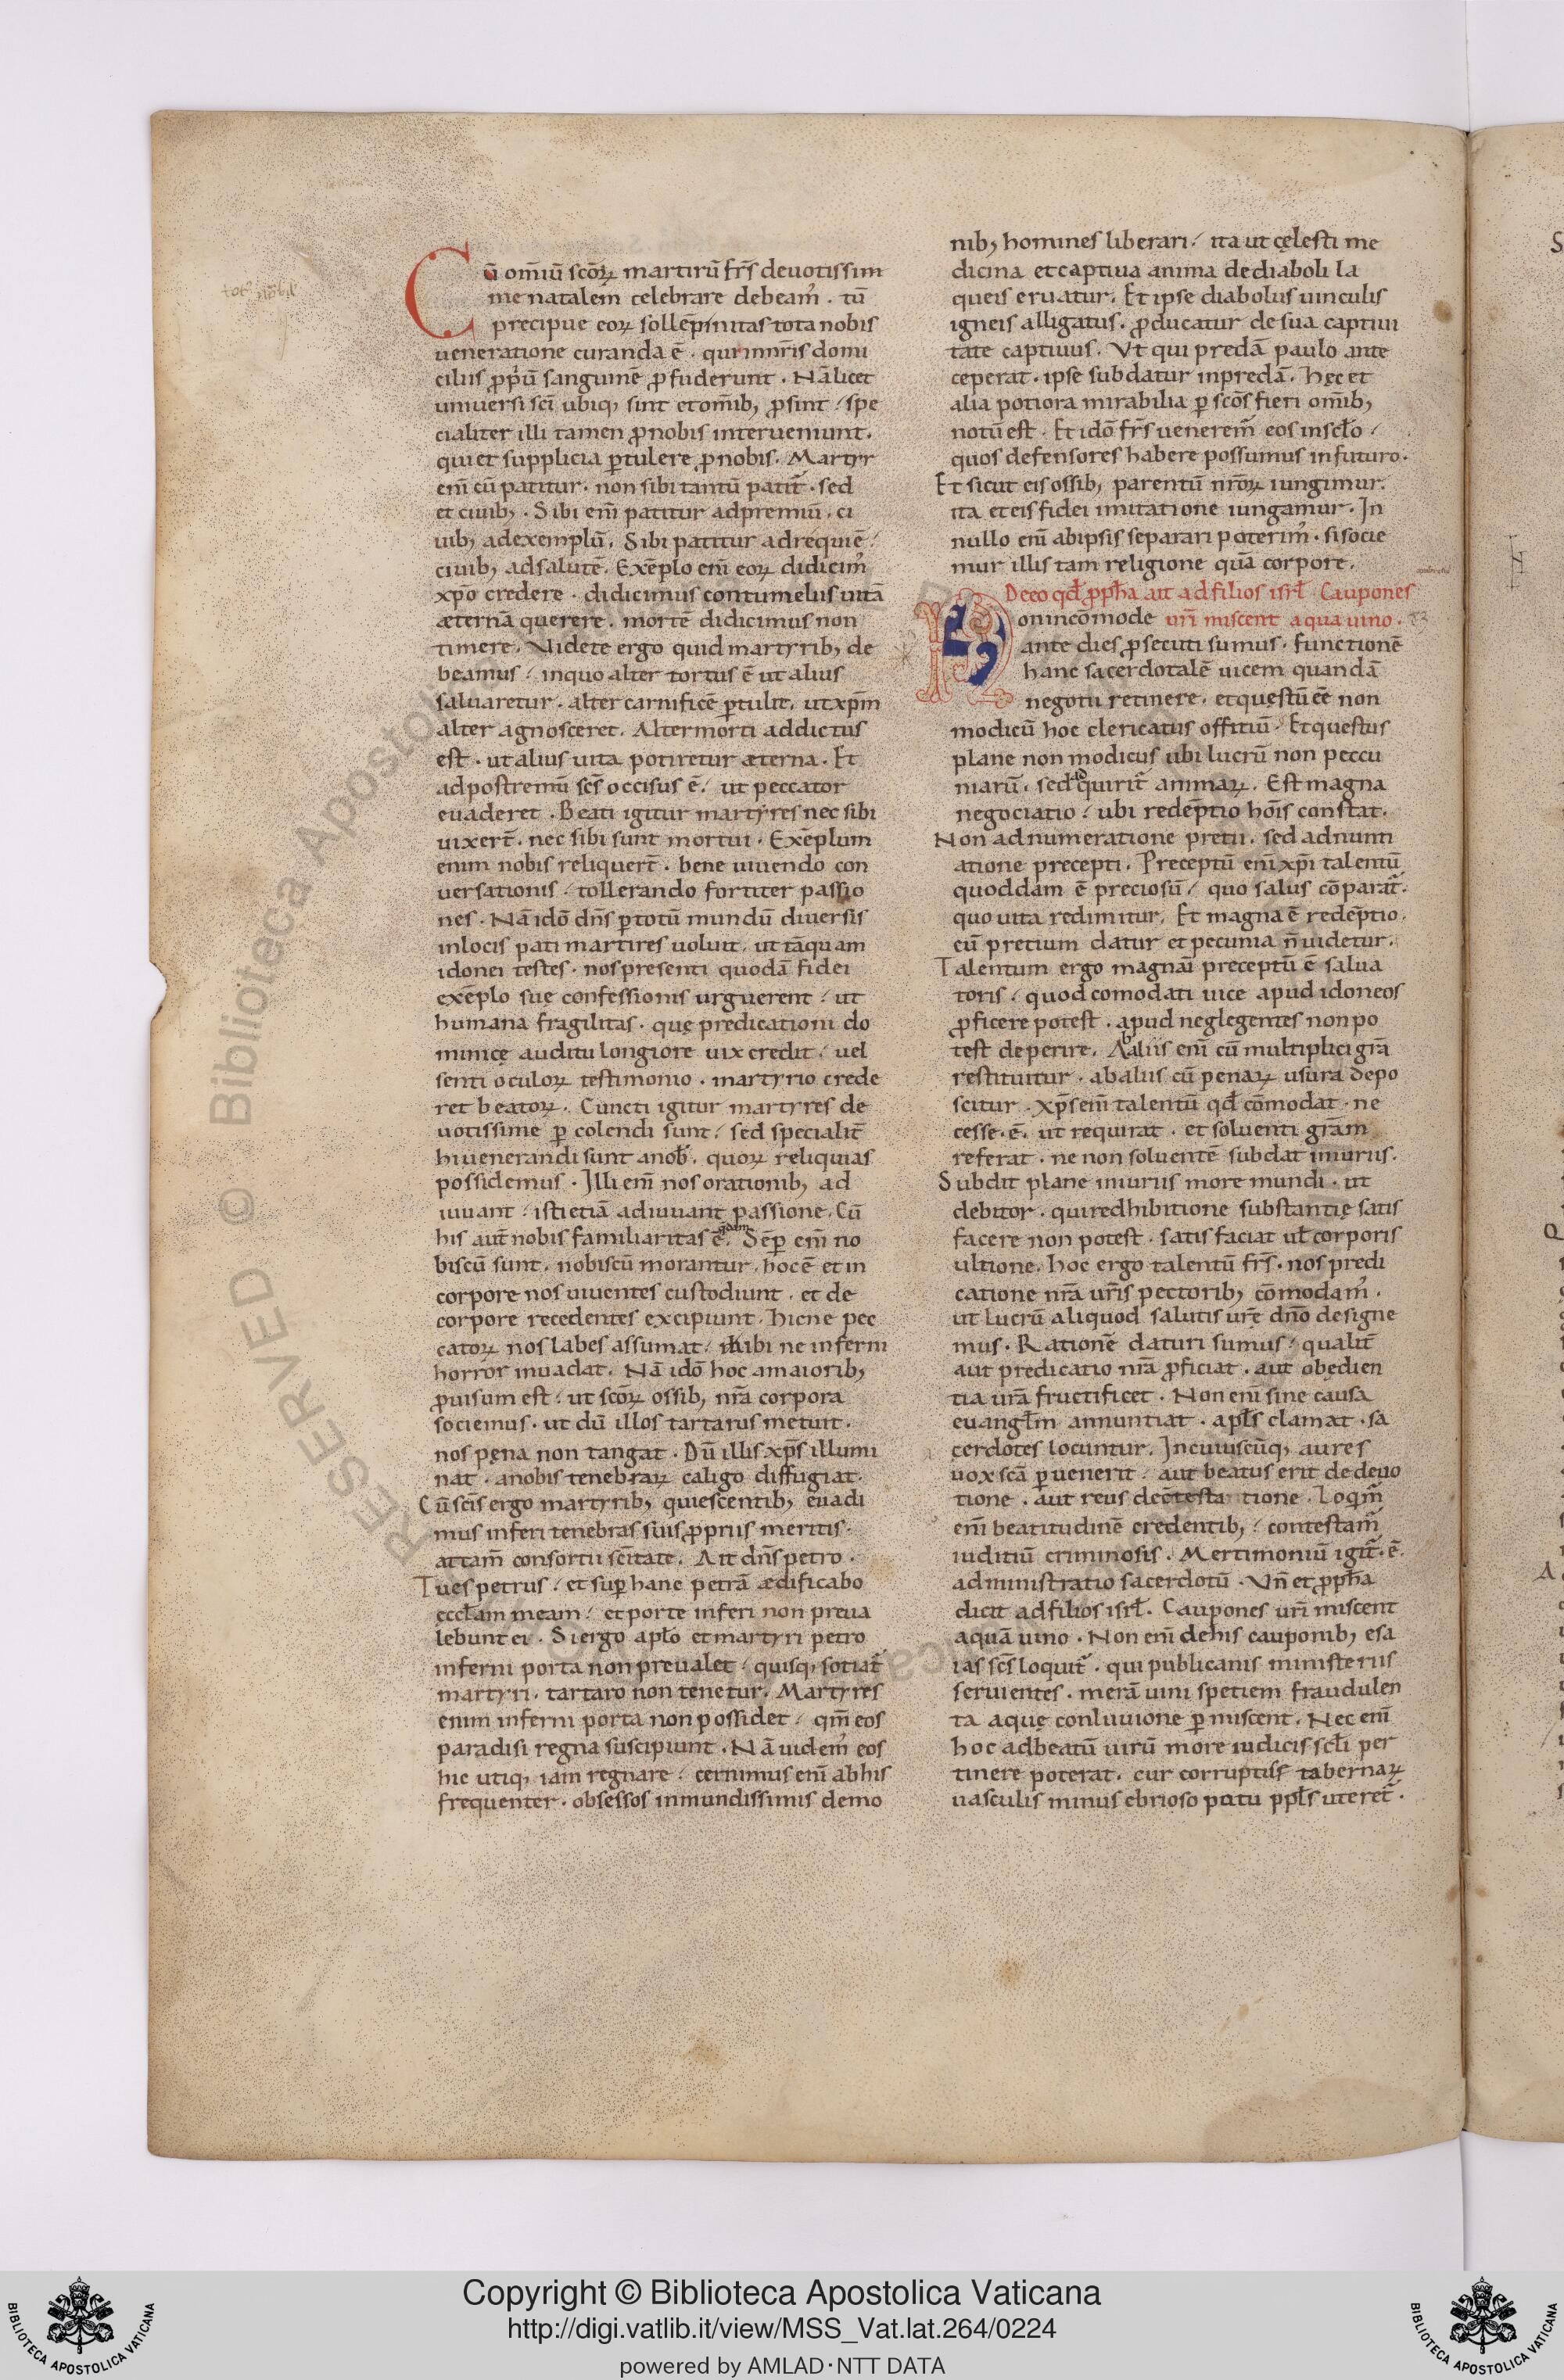 Cū om̄iū scōꝝ martirū fr̄s deuotissim
me natalem celebrare debeam᷒ . tū
precipue eoꝝ sollēpnitas tota nobis
ueneratione curanda ē . qui in nr̄is domi
ciliis ꝓpriū sanguinē ꝓfuderunt . Nā licet
uniuersi sc̄i ubiq; sint et om̄ib; ꝓsint / spe
cialiter illi tamen ꝓ nobis interueniunt .
qui et supplicia ꝑtulere ꝓ nobis . Martyr
enī cū patitur . non sibi tantū patit᷑ . sed
et ciuib; . Sibi enī patitur ad premiū . ci
uib; ad exemplū . Sibi patitur ad requiē /
ciuib; ad salutē . Exēplo enī eoꝝ didicim᷒
xp̄o credere . didicimus contumeliis uitā
æternā querere . mortē didicimus non
timere . Videte ergo quid martyrib; de
beamus / in quo alter tortus ē ut alius
saluaretur . alter carnificē ꝑtulit . ut xp̄m
alter agnosceret . Alter morti addictus
est . ut alius uita potiretur æterna . Et
ad postremū sc̄s occisus ē / ut peccator
euaderet . Beati igitur martyres nec sibi
uixert̄ . nec sibi sunt mortui . Exēplum
enim nobis reliquert̄ . bene uiuendo con
uersationis / tollerando fortiter passio
nes . Nā idō dn̄s ꝑ totū mundū diuersis
in locis pati martires uoluit . ut tāquam
idonei testes . nos presenti quodā fidei
exēplo suę confessionis urguerent / ut
humana fragilitas . quę predicationi do
minicę auditu longiore uix credit / uel
senti oculoꝝ testimonio . martyrio crede
ret beatoꝝ . Cuncti igitur martyres de
uotissime ꝑ colendi sunt / sed specialit̄
hi uenerandi sunt a nob̄ . quoꝝ reliquias
possidemus . Illi enī nos orationib; ad
iuuant / isti etiā adiuuant passione . Cū
his aut̄ nobis familiaritas ē q̄dam . Sēꝑ enī no
biscū sunt . nobiscū morantur . hoc ē et in
corpore nos uiuentes custodiunt . et de
corpore recedentes excipiunt . hic ne pec
catoꝝ nos labes assumat / ibi ne inferni
horror inuadat . Nā idō hoc a maiorib;
ꝓuisum est / ut scōꝝ ossib; nr̄a corpora
sociemus . ut dū illos tartarus metuit .
nos pęna non tangat . Dū illis xp̄s illumi
nat . a nobis tenebraꝝ caligo diffugiat .
Cū sc̄is ergo martyrib; quiescentib; euadi
mus inferi tenebras suis ꝓpriis meritis .
attam̄ consortii sc̄itate . Ait dn̄s petro .
Tu es petrus / et suꝑ hanc petrā ædificabo
eccl̄am meam / et porte inferi non preua
lebunt ei . Si ergo apl̄o et martyri petro
inferni porta non preualet / quisq; sotiat᷑
martyri . tartaro non tenetur . Martyres
enim inferni porta non possidet / qm̄ eos
paradisi regna suscipiunt . Nā uidem᷒ eos
hic utiq; iam regnare / cernimus enī ab his
frequenter . obsessos inmundissimis demo
nib; homines liberari / ita ut cęlesti me
dicina et captiua anima de diaboli la
queis eruatur . Et ipse diabolus uinculis
igneis alligatus . ꝓducatur de sua captiui
tate captiuus . Vt qui predā paulo ante
ceperat . ipse subdatur in predā . Hęc et
alia potiora mirabilia ꝑ scōs fieri om̄ib;
notū est . Et idō fr̄s ueneremr̄ eos in sc̄lo /
quos defensores habere possumus in futuro .
Et sicut eis ossib; parentū nr̄oꝝ iungimur .
ita et eis fidei imitatione iungamur . In
nullo enī ab ipsis separari poterim᷒ . si socie
mur illis tam religione quā corpore .
De eo qd̄ ꝓph̄a ait ad filios isrl̄ Caupones
on incōmode ur̄i miscent aqua uino .
ante dies ꝓsecuti sumus . functionē
hanc sacerdotalē uicem quandā
negotii retinere . et quęstū eē non
modicū hoc clericatus offitiū . Et questus
plane non modicus ubi lucrū non peccu
niarū . sed adquirit᷑ animaꝝ . Est magna
negociatio / ubi redēptio hōis constat .
Non ad numeratione pretii . sed adnunti
atione precepti . Preceptū enī xp̄i talentū
quoddam ē preciosū / quo salus cōparat᷑ .
quo uita redimitur . Et magna ē redēptio .
cū pretium datur et pecunia n̄ uidetur .
Talentum ergo magnaū preceptū ē salua
toris / quod comodati uice apud idoneos
ꝓficere potest . apud neglegentes non po
test deperire . Ab aliis enī cū multiplici gr̄a
restituitur . ab aliis cū penaꝝ usura depo
scitur . xp̄s enī talentū qd̄ cōmodat . ne
cesse . ē . ut requirat . et soluenti gr̄am
referat . ne non soluentē subdat iniuriis .
Subdit plane iniuriis more mundi . ut
debitor . qui redhibitione substantię satis
facere non potest . satis faciat ut̄ corporis
ultione . hoc ergo talentū fr̄s . nos predi
catione nr̄a ur̄is pectorib; cōmodam᷒ .
ut lucrū aliquod salutis ur̄ę dn̄o designe
mus . Rationē daturi sumus / qualit̄
aut predicatio nr̄a ꝓficiat . aut obędien
tia ur̄a fructificet . Non enī sine causa
euangl̄m annuntiat . apl̄s clamat . sa
cerdotes locuntur . In cuiuscūq; aures
uox sc̄a ꝑuenerit / aut beatus erit de deuo
tione . aut reus de cōtestatione . Loqm̄r
enī beatitudinē credentib; / contestam᷑
iuditiū criminosis . Mertimoniū igit᷑ . ē .
administratio sacerdotū . Vn̄ et ꝓph̄a
dicit ad filios isrl̄ . Caupones uri miscent
aquā uino . Non enī de his cauponib; esa
ias sc̄s loquit᷑ . qui publicanis ministeriis
seruientes . merā uini spetiem fraudulen
ta aquę conluuione ꝑmiscent . Nec enī
hoc ad beatū uirū more iudicis sc̄li per
tinere poterat . cur corruptis tabernaꝝ
uasculis minus ebrioso potu ppl̄s uteret᷑ .
Copyright © Biblioteca Apostolica Vaticana
http://digi.vatlib.it/view/MSS_Vat.lat.264/0224
powered by AMLAD·NTT DATA
BIBLIOTECA APOSTOLICA VATICANA
BIBLIOTECA APOSTOLICA VATICANA